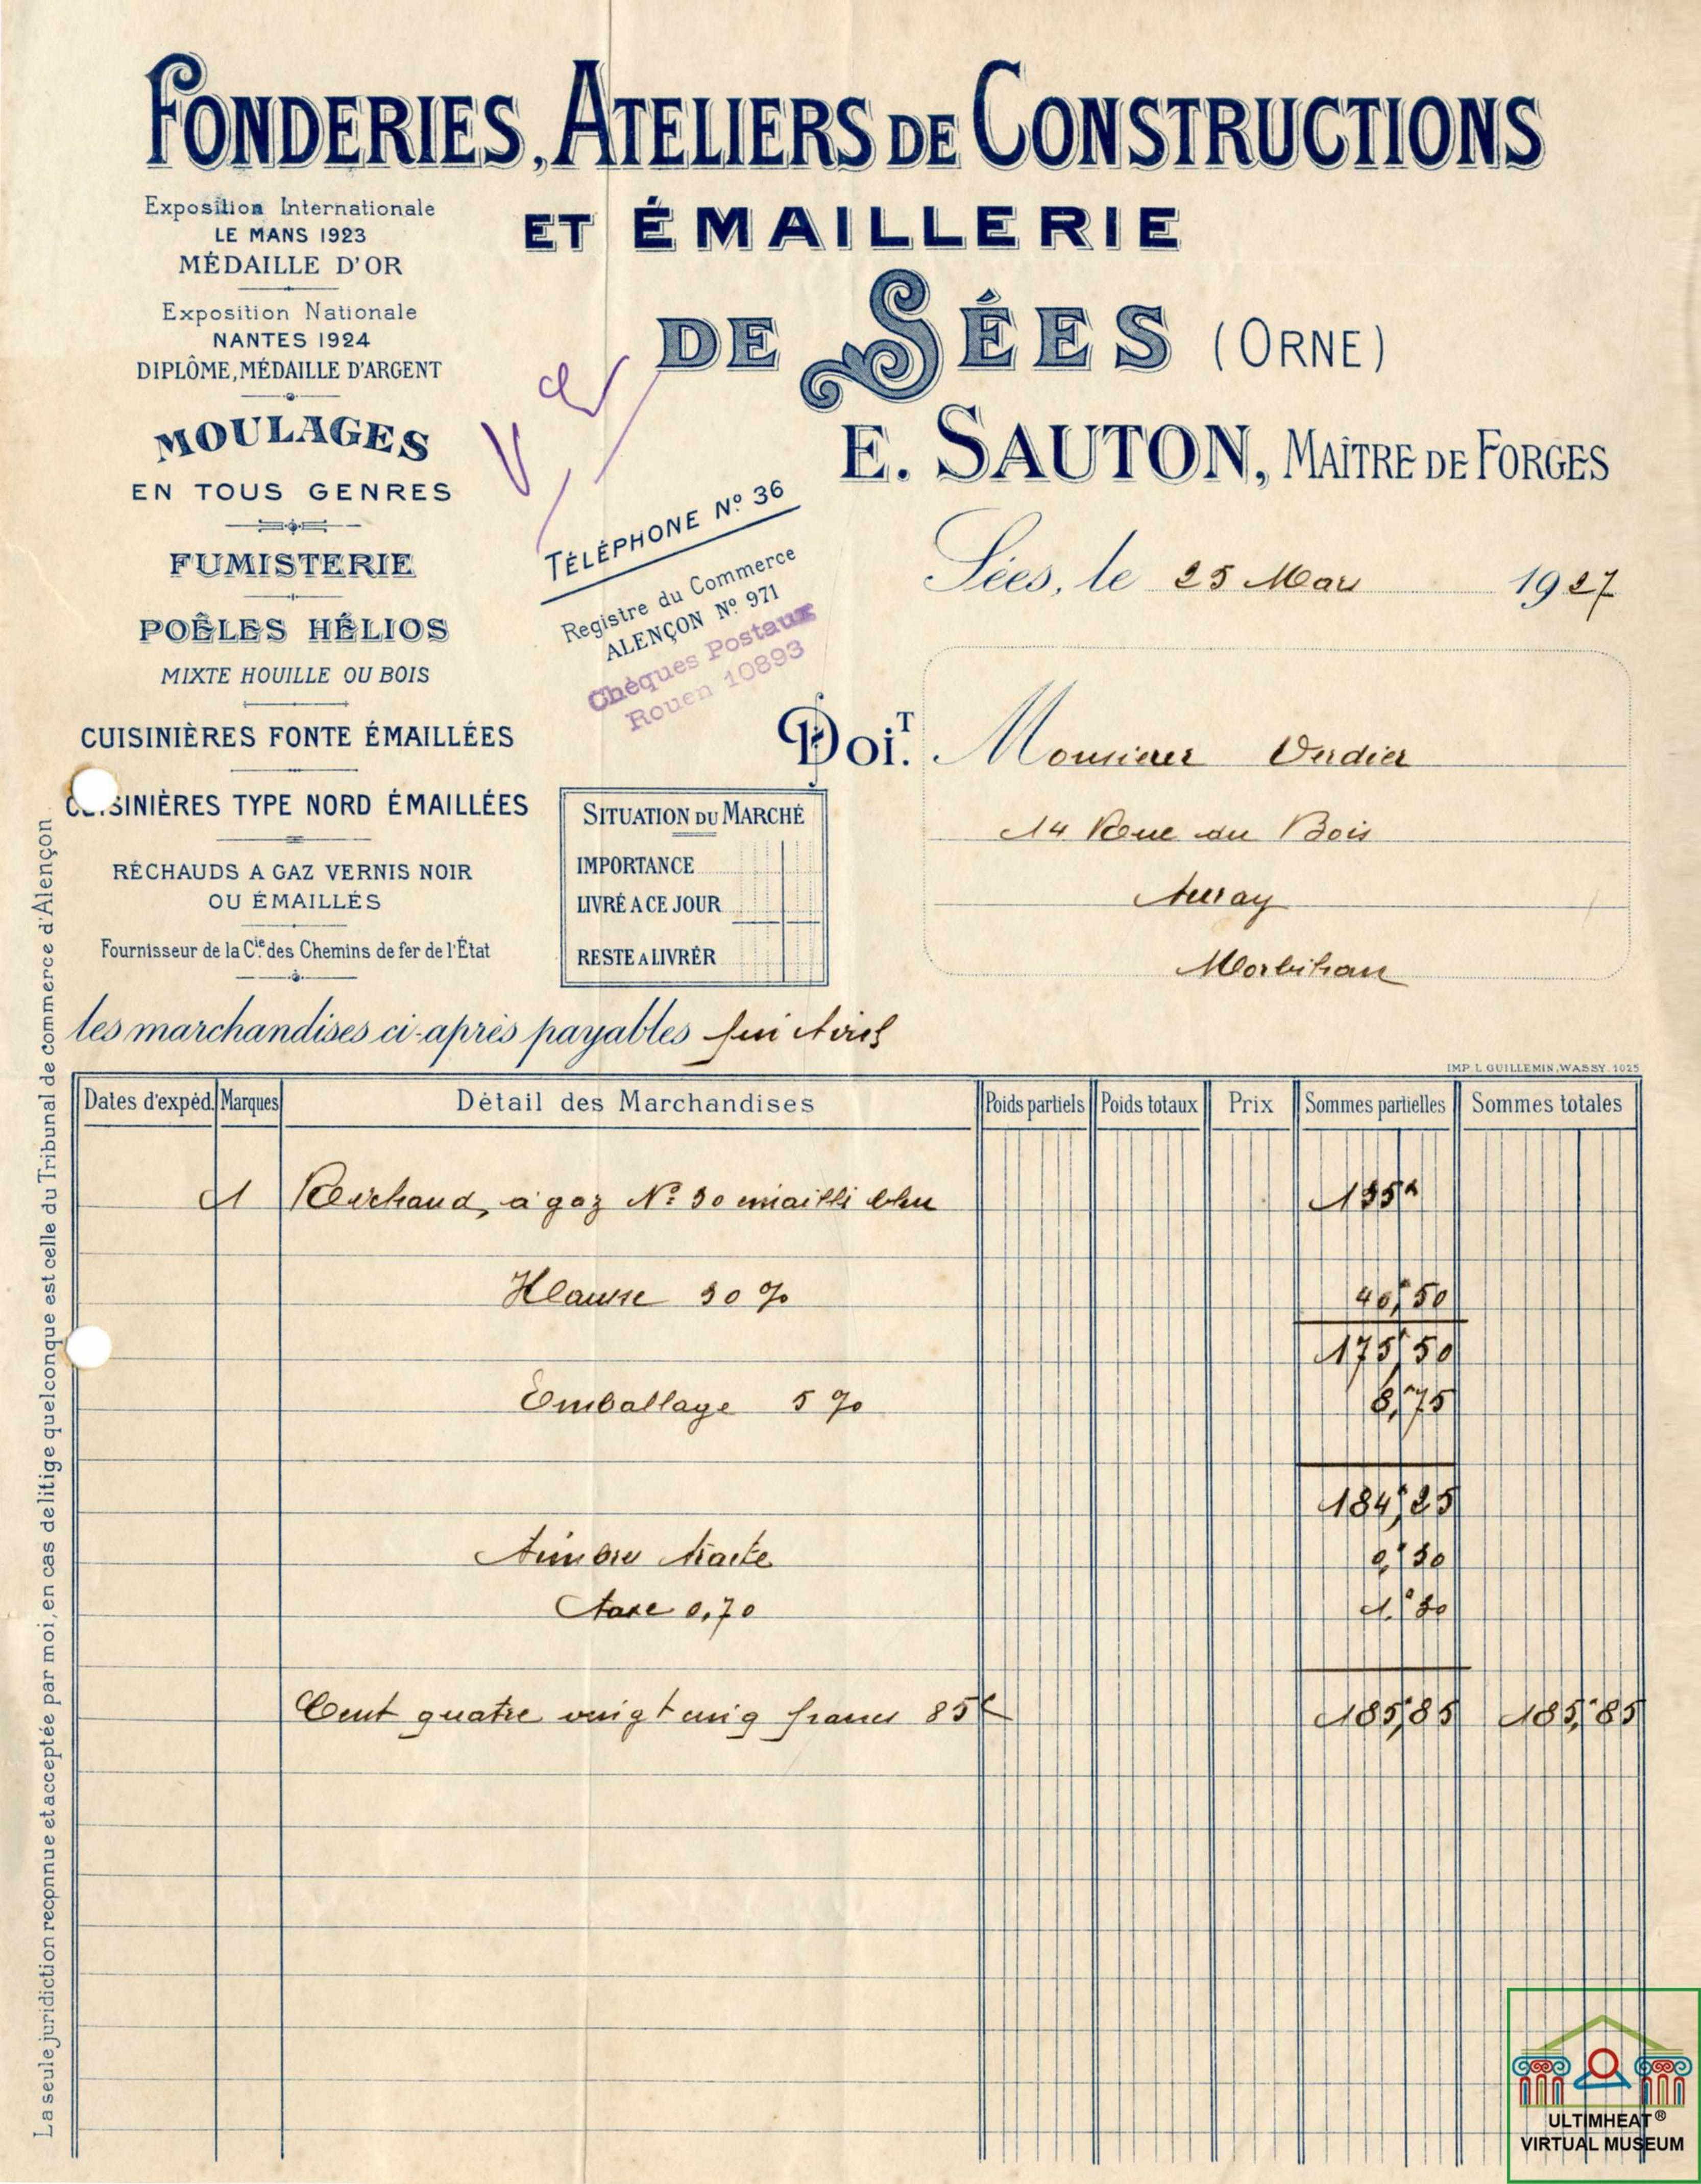 FONDERIES, ATELIERS DE CONSTRUCTIONS
ET ÉMAILLERIE
DE SÉES (ORNE)
E. SAUTON, MAÎTRE DE FORGES
Exposition Internationale
LE MANS 1923
MÉDAILLE D'OR
Exposition Nationale
NANTES 1924
DIPLÔME, MÉDAILLE D'ARGENT
MOULAGES
EN TOUS GENRES
FUMISTERIE
POÊLES HÉLIOS
MIXTE HOUILLE OU BOIS
CUISINIÈRES FONTE ÉMAILLÉES
CUISINIÈRES TYPE NORD ÉMAILLÉES
RÉCHAUDS A GAZ VERNIS NOIR
OU ÉMAILLÉS
Fournisseur de la Cie des Chemins de fer de l'État
TÉLÉPHONE Nº 36
Registre du Commerce
ALENÇON Nº 971
Chèques Postaux
Rouen 10893
Sées, le 25 Mars 1927
DoiT. Monsieur Verdier
14 Rue du Bois
Auray
Morbihan
SITUATION DU MARCHÉ
IMPORTANCE
LIVRÉ A CE JOUR
RESTE A LIVRER
les marchandises ci-après payables fin Avril
IMP. L. GUILLEMIN, WASSY. 1025
Dates d'expéd. Marques Détail des Marchandises Poids partiels Poids totaux Prix Sommes partielles Sommes totales
1 Réchaud, à gaz Nº 30 émaillé bleu 135
Hausse 30 % 40,50
175,50
Emballage 5 % 8,75
184,25
Timbre traite 0,30
taxe 0,70 1,30
Cent quatre vingt cinq francs 85c 185,85 185,85
La seule juridiction reconnue et acceptée par moi, en cas de litige quelconque est celle du Tribunal de commerce d'Alençon
ULTIMHEAT®
VIRTUAL MUSEUM